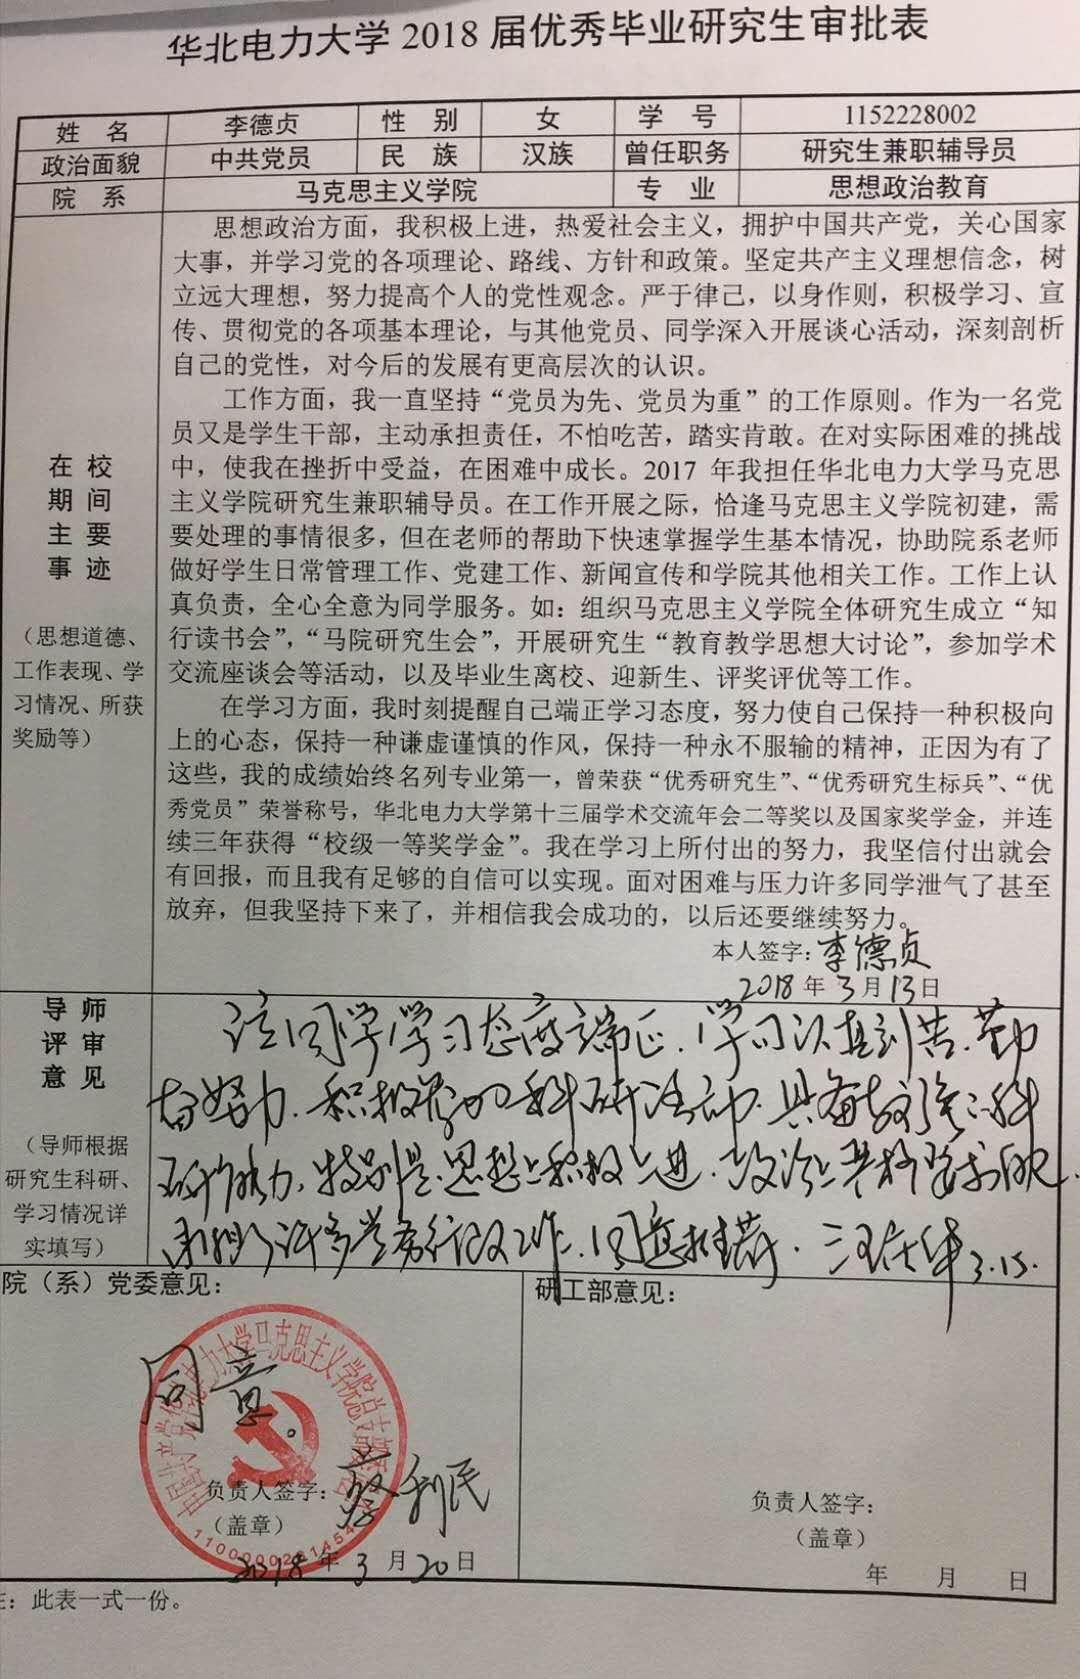 华北电力大学 2018 届优秀毕业研究生审批表
姓 名 李德贞 性 别 女 学 号 1152228002
政治面貌 中共党员 民 族 汉族 曾任职务 研究生兼职辅导员
院 系 马克思主义学院 专 业 思想政治教育
在 校
期 间
主 要
事 迹
（思想道德、
工作表现、学
习情况、所获
奖励等）
思想政治方面，我积极上进，热爱社会主义，拥护中国共产党，关心国家
大事，并学习党的各项理论、路线、方针和政策。坚定共产主义理想信念，树
立远大理想，努力提高个人的党性观念。严于律己，以身作则，积极学习、宣
传、贯彻党的各项基本理论，与其他党员、同学深入开展谈心活动，深刻剖析
自己的党性，对今后的发展有更高层次的认识。
工作方面，我一直坚持“党员为先、党员为重”的工作原则。作为一名党
员又是学生干部，主动承担责任，不怕吃苦，踏实肯敢。在对实际困难的挑战
中，使我在挫折中受益，在困难中成长。2017 年我担任华北电力大学马克思
主义学院研究生兼职辅导员。在工作开展之际，恰逢马克思主义学院初建，需
要处理的事情很多，但在老师的帮助下快速掌握学生基本情况，协助院系老师
做好学生日常管理工作、党建工作、新闻宣传和学院其他相关工作。工作上认
真负责，全心全意为同学服务。如：组织马克思主义学院全体研究生成立“知
行读书会”，“马院研究生会”，开展研究生“教育教学思想大讨论”，参加学术
交流座谈会等活动，以及毕业生离校、迎新生、评奖评优等工作。
在学习方面，我时刻提醒自己端正学习态度，努力使自己保持一种积极向
上的心态，保持一种谦虚谨慎的作风，保持一种永不服输的精神，正因为有了
这些，我的成绩始终名列专业第一，曾荣获“优秀研究生”、“优秀研究生标兵”、“优
秀党员”荣誉称号，华北电力大学第十三届学术交流年会二等奖以及国家奖学金，并连
续三年获得“校级一等奖学金”。我在学习上所付出的努力，我坚信付出就会
有回报，而且我有足够的自信可以实现。面对困难与压力许多同学泄气了甚至
放弃，但我坚持下来了，并相信我会成功的，以后还要继续努力。
本人签字：李德贞
2018 年 3 月 13 日
导 师
评 审
意 见
（导师根据
研究生科研、
学习情况详
实填写）
该同学学习态度端正，学习认真刻苦，勤
奋努力，积极参加科研活动，具备较强的科
研能力，特别是思想上积极上进，政治上
许多学务行政工作，同意推荐。 3.15.
院（系）党委意见：
同意。
中国共产党华北电力大学马克思主义学院总支部委员会
负责人签字：蔡利民
（盖章）
2018 年 3 月 20 日
研工部意见：
负责人签字：
（盖章）
年 月 日
注：此表一式一份。